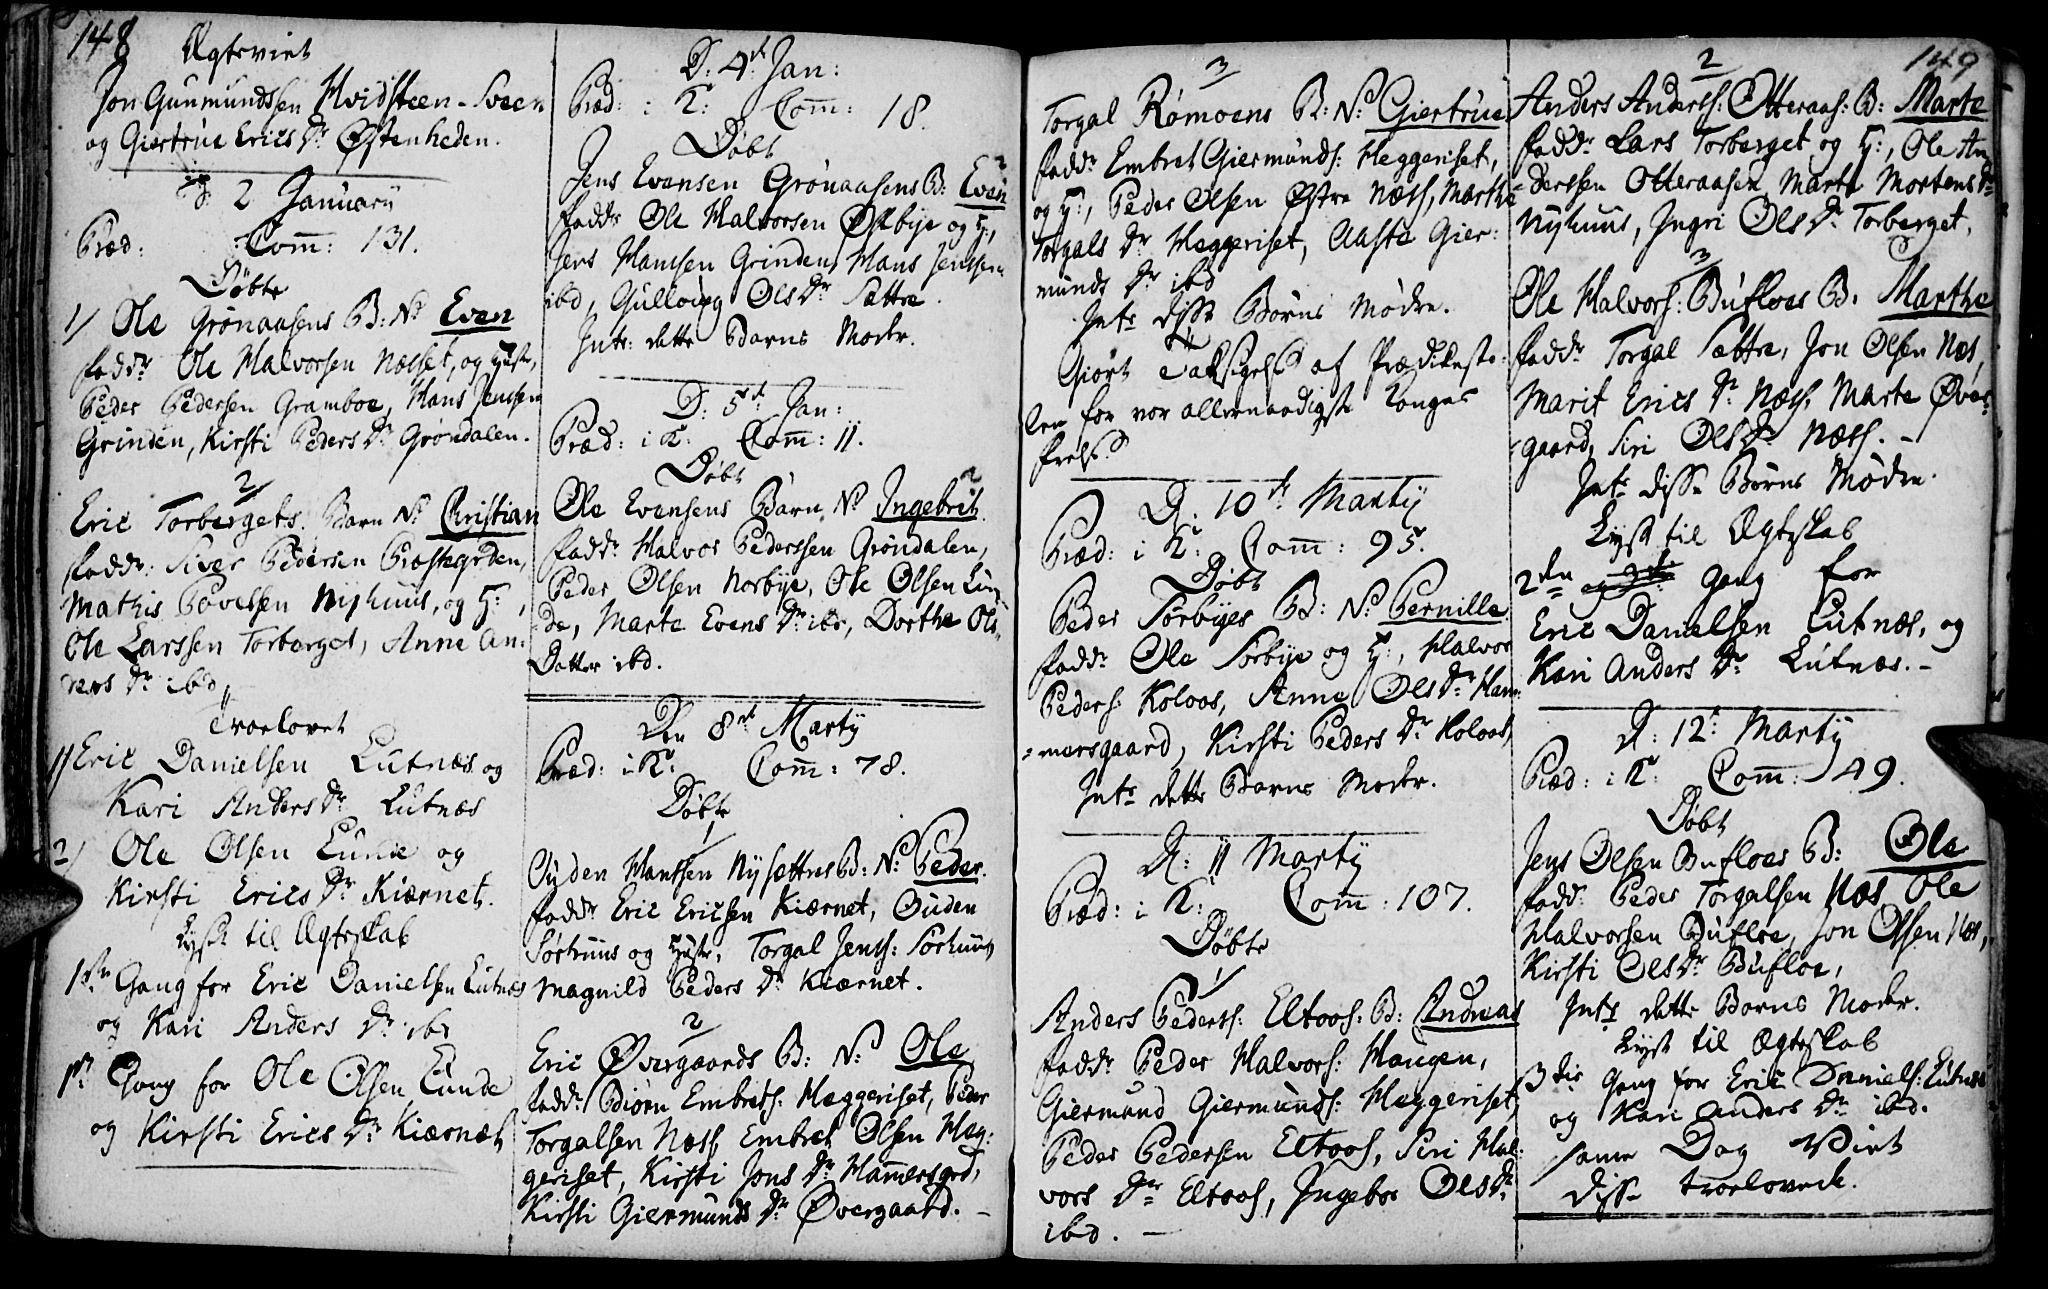 148
Ægteviet
Jon Gunmundssen Hvidsteen-Sveen
og Giertrue Erics Dr Østenheden.
D: 2 Januarÿ
Præd: Com̅: 131.
Døbte
1/ Ole Grønaasens B: N: Even
fadd: Ole Halvorsen Næsset, og Hustr,
Peder Pedersen Gramboe, Hans Jenssen
Grinden, Kirsti Peders Dr Grøndalen.
2/
Eric Torbergets Barn N: Christian
fadd: Siver Pedersen Præstegrden,
Mathis Povelsen Nyhuus, og H:,
Ole Larssen Torberget, Anne An-
ders Dr ibd,
Troelovet
1/ Eric Danielsen Lutnæs og
Kari Anders Dr Lutnæs
2/ Ole Olsen Lunde og
Kirsti Erics Dr Kiærnet.
Lyst til Ægteskab
1ste Gang for Eric Danielsen Lutnæs
og Kari Anders Dr ibd
1ste Gang for Ole Olsen Lunde
og Kirsti Erics Dr Kiærnæt
D: 4de Jan:
Præd: i K: Com̅: 18.
Døbt
Jens Evensen Grønaasens B: Even
fadd: Ole Halvorsen Østbÿe og H;
Jens Hansen Grinden, Hans Jenssen
ibd, Gullovg Ols Dr Sættre.
Intr: dette Barns Moder.
D: 5te Jan:
Præd: i K: Com̅: 11.
Døbt
Ole Evensens Barn N: Ingebrit
fadd: Halvor Pederssen Grøndalen,
Peder Olsen Norbÿe, Ole Olsen Lun-
de, Marte Evens Dr ibd, Dorthe Ols
Datter ibd.
Den 8de Martÿ
Præd: i K: Com̅: 78.
Døbte
1/
Ouden Hantsen Nÿsættres B: N: Peder.
fadd: Eric Ericsen Kiærnet, Ouden
Sørhuus og Hustr, Torgal Jens: Sørhuus
Magnild Peders Dr Kiærnet.
2/
Eric Øvergaards B: N: Ole
fadd: Biørn Embrets: Hæggeriset, Peder
Torgalsen Næss, Embret Olsen Heg-
geriset, Kirsti Jons Dr Ham̅ersgrd,
Kirsti Giermunds Dr Øvergaard. -
3/
Torgal Rømoens B: N: Giertrue
fadd: Embret Giermunds: Heggeriset,
og H:, Peder Olsen Østre Næss, Marthe
Torgals Dr Heggeriset, Aaste Gier-
munds Dr ibd
Intr: disse Børns Mødre.
Giort Taksigelse af Prædikesto-
len for vor allernaadigste Konges
frelse
D: 10de Martÿ
Præd: i K: Com̅: 95.
Døbt
Peder Sørbÿes B: N: Pernille
fadd: Ole Sørbÿe og H:, Halvor
Peders: Koloos, Anne Ols Dr Ham-
mersgaard, Kirsti Peders Dr Koloos,
Intr: dette Barns Moder.
D: 11 Martÿ
Præd: i K: Com̅: 107.
Døbte
1/
Anders Peders: Eltoos: B: Andreas
fadd: Peder Halvors: Haugen,
Giermund Giermunds: Heggeriset,
Peder Pedersen Eltoos, Siri Hal-
vors Dr Eltoos, Ingebor Ols Dr
ibd. -
149
2
Anders Anders: Otteraas: B: Marte
fadd: Lars Torberget og H:, Ole An-
derssen Otteraasen, Marte Mortens Dr
Nÿhuus, Ingri Ols Dr Torberget,
3
Ole Halvors: Bufloes B: Marthe
fadd: Torgal Sættre, Jon Olsen Næs,
Marit Erics Dr Næss, Marte Øver-
gaard, Siri Ols Dr Næss. -
Intr: disse Børns Mødre.
Lyst til Ægteskab
2den og 3die Gang for
Eric Danielsen Lutnæs, og
Kari Anders Dr Lutnæs. -
D: 12te Martÿ
Præd: i K: Com̅: 149.
Døbt
Jens Olsen Bufloes B: Ole
fadd: Peder Torgalsen Næs, Ole
Halvorsen Bufloe, Jon Olsen Næs,
Kirsti Ols Dr Bufloe,
Intr: dette Barns Moder.
Lyst til Ægteskab
3die Gang for Eric Daniels: Lutnæs
og Kari Anders Dr ibd.
samme Dag Viet
disse troelovede.